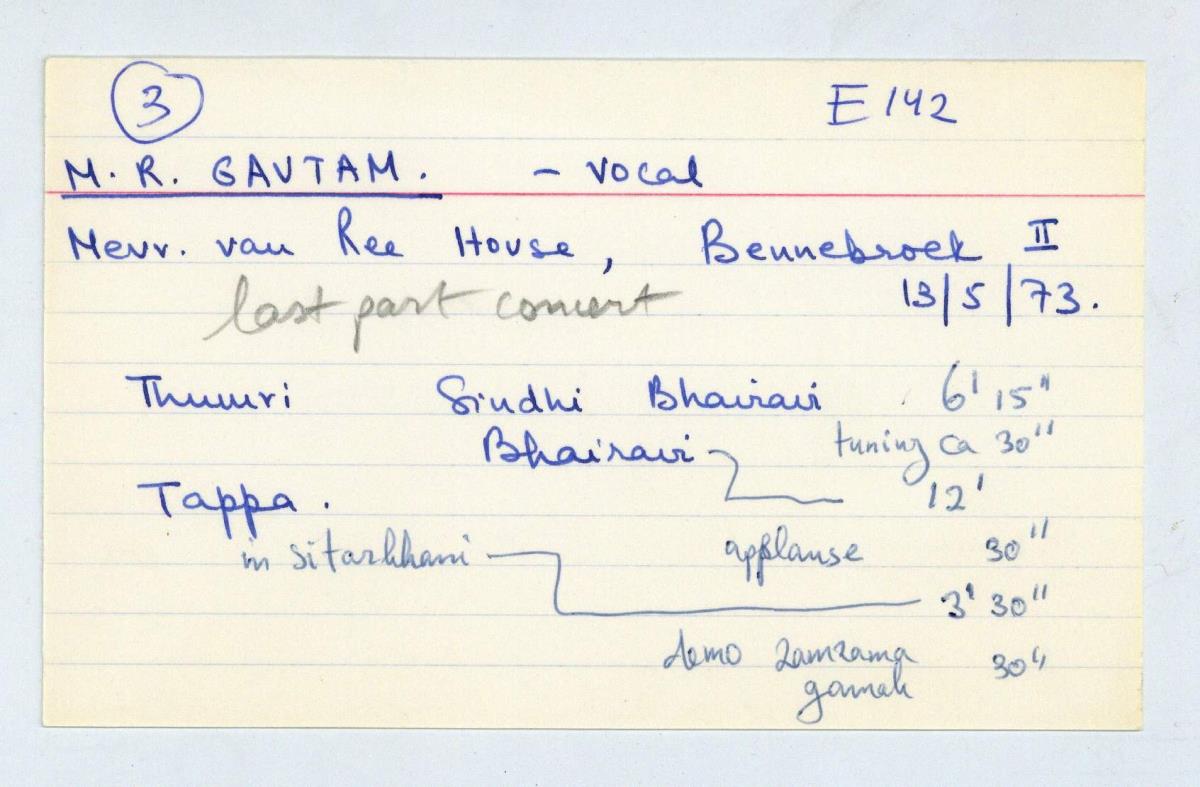 3 E 142
M. R. GAUTAM. - vocal
Mevr. van Ree House, Bennebroek II
last part concert 13/5/73.
Thumri Sindhi Bhairavi 6' 15"
Bhairavi tuning ca 30"
Tappa. 12'
in sitarkhani applause 30"
3' 30"
demo zamzama 30"
gamak